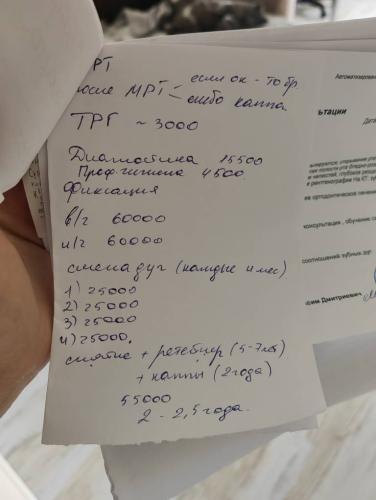 МРТ
после МРТ - если ок - то бр
либо каппа
ТРГ ~ 3000
Диагностика 15500
Проф.гигиена 4500
Фиксация
в/г 60000
н/г 60000
смена дуг (каждые 4 мес)
1) 25000
2) 25000
3) 25000
4) 25000.
снятие + ретейнер (5-7 лет)
+ каппы (2 года)
55000
2 - 2,5 года.
Автоматизирован
льтации
Дата
консультация , обучение
соотношений зубных дуг
ксим Дмитриевич